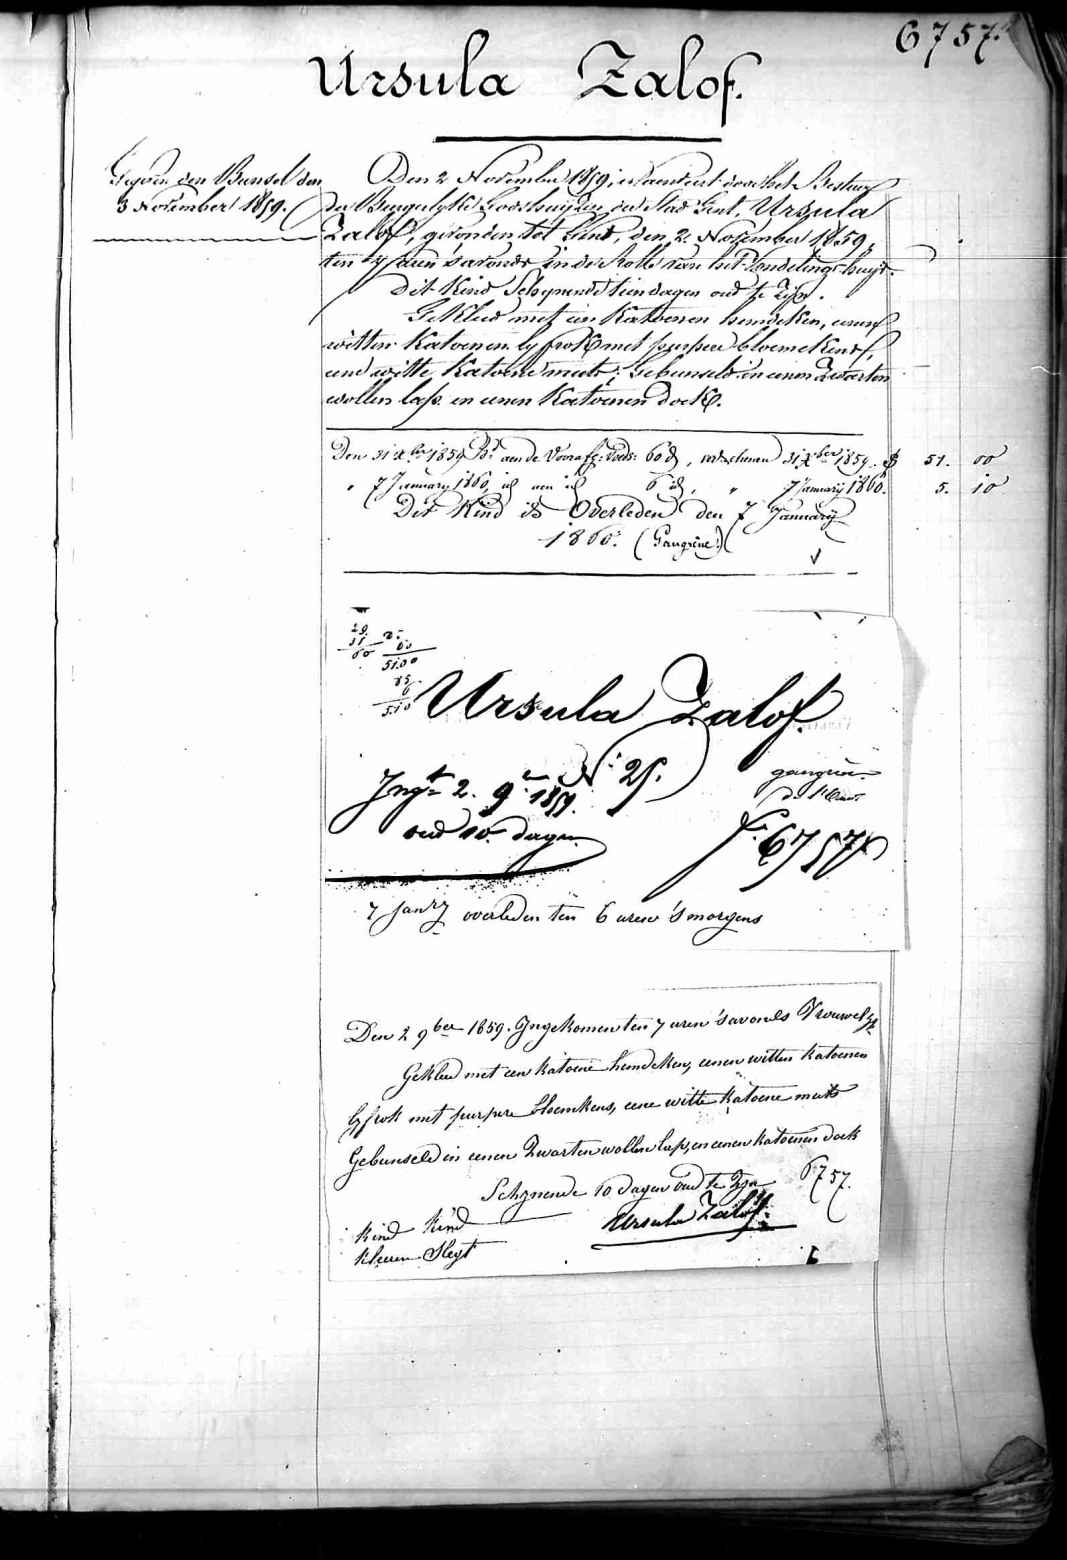 6757.
Ursula Zalof.
Gegeven den Bunsel den
3 November 1859.
Den 2 November 1859, is aenveird door het Bestuer
der Burgerlyke Godshuyzen der Stad Gent, Ursula
Zalof, gevonden tot Gent, den 2 November 1859,
ten 7 uren s'avonds in de Rolle van het Vondelings-huys.
Dit Kind Schynende tien dagen oud te Zyn.
Gekleed met een Katoenen hemdeken, eenen
witten Katoenen lyfrok met purpere bloemekens,
eene witte Katoene muts; Gebunseld in eenen Zwarten
wollen lap en eenen Katoenen doek.
Den 31 Xber 1859 Bd aen de Voorafg: Voeds: 60 d, verschenen 31 Xber 1859. 51. 00
" 7 January 1860, id aen id 6 id, " 7 January 1860. 5. 10
Dit Kind is Overleden den 7 January
1860. (Gangrène)
29.
31
60
85
60
51.00
85
6
5.10
Ursula Zalof.
N: 25.
Ingt 2. 9r 1859.
oud 10. dagen
gangrène
f: 6757
7 Janry overleden ten 6 uren 's morgens
Den 2 9ber 1859. Ingekomen ten 7 uren 's avonds Vrouwelyk
Gekleed met een katoene hemdeken, eenen witten katoenen
lyfrok met purpere bloemkens, eene witte katoene muts
Gebunseld in eenen Zwarten wollen lap, en eenen katoenen doek
Schynende 10 dagen oud te Zyn 6757.
kind kind
Ursula Zalof.
kleeren Slegt